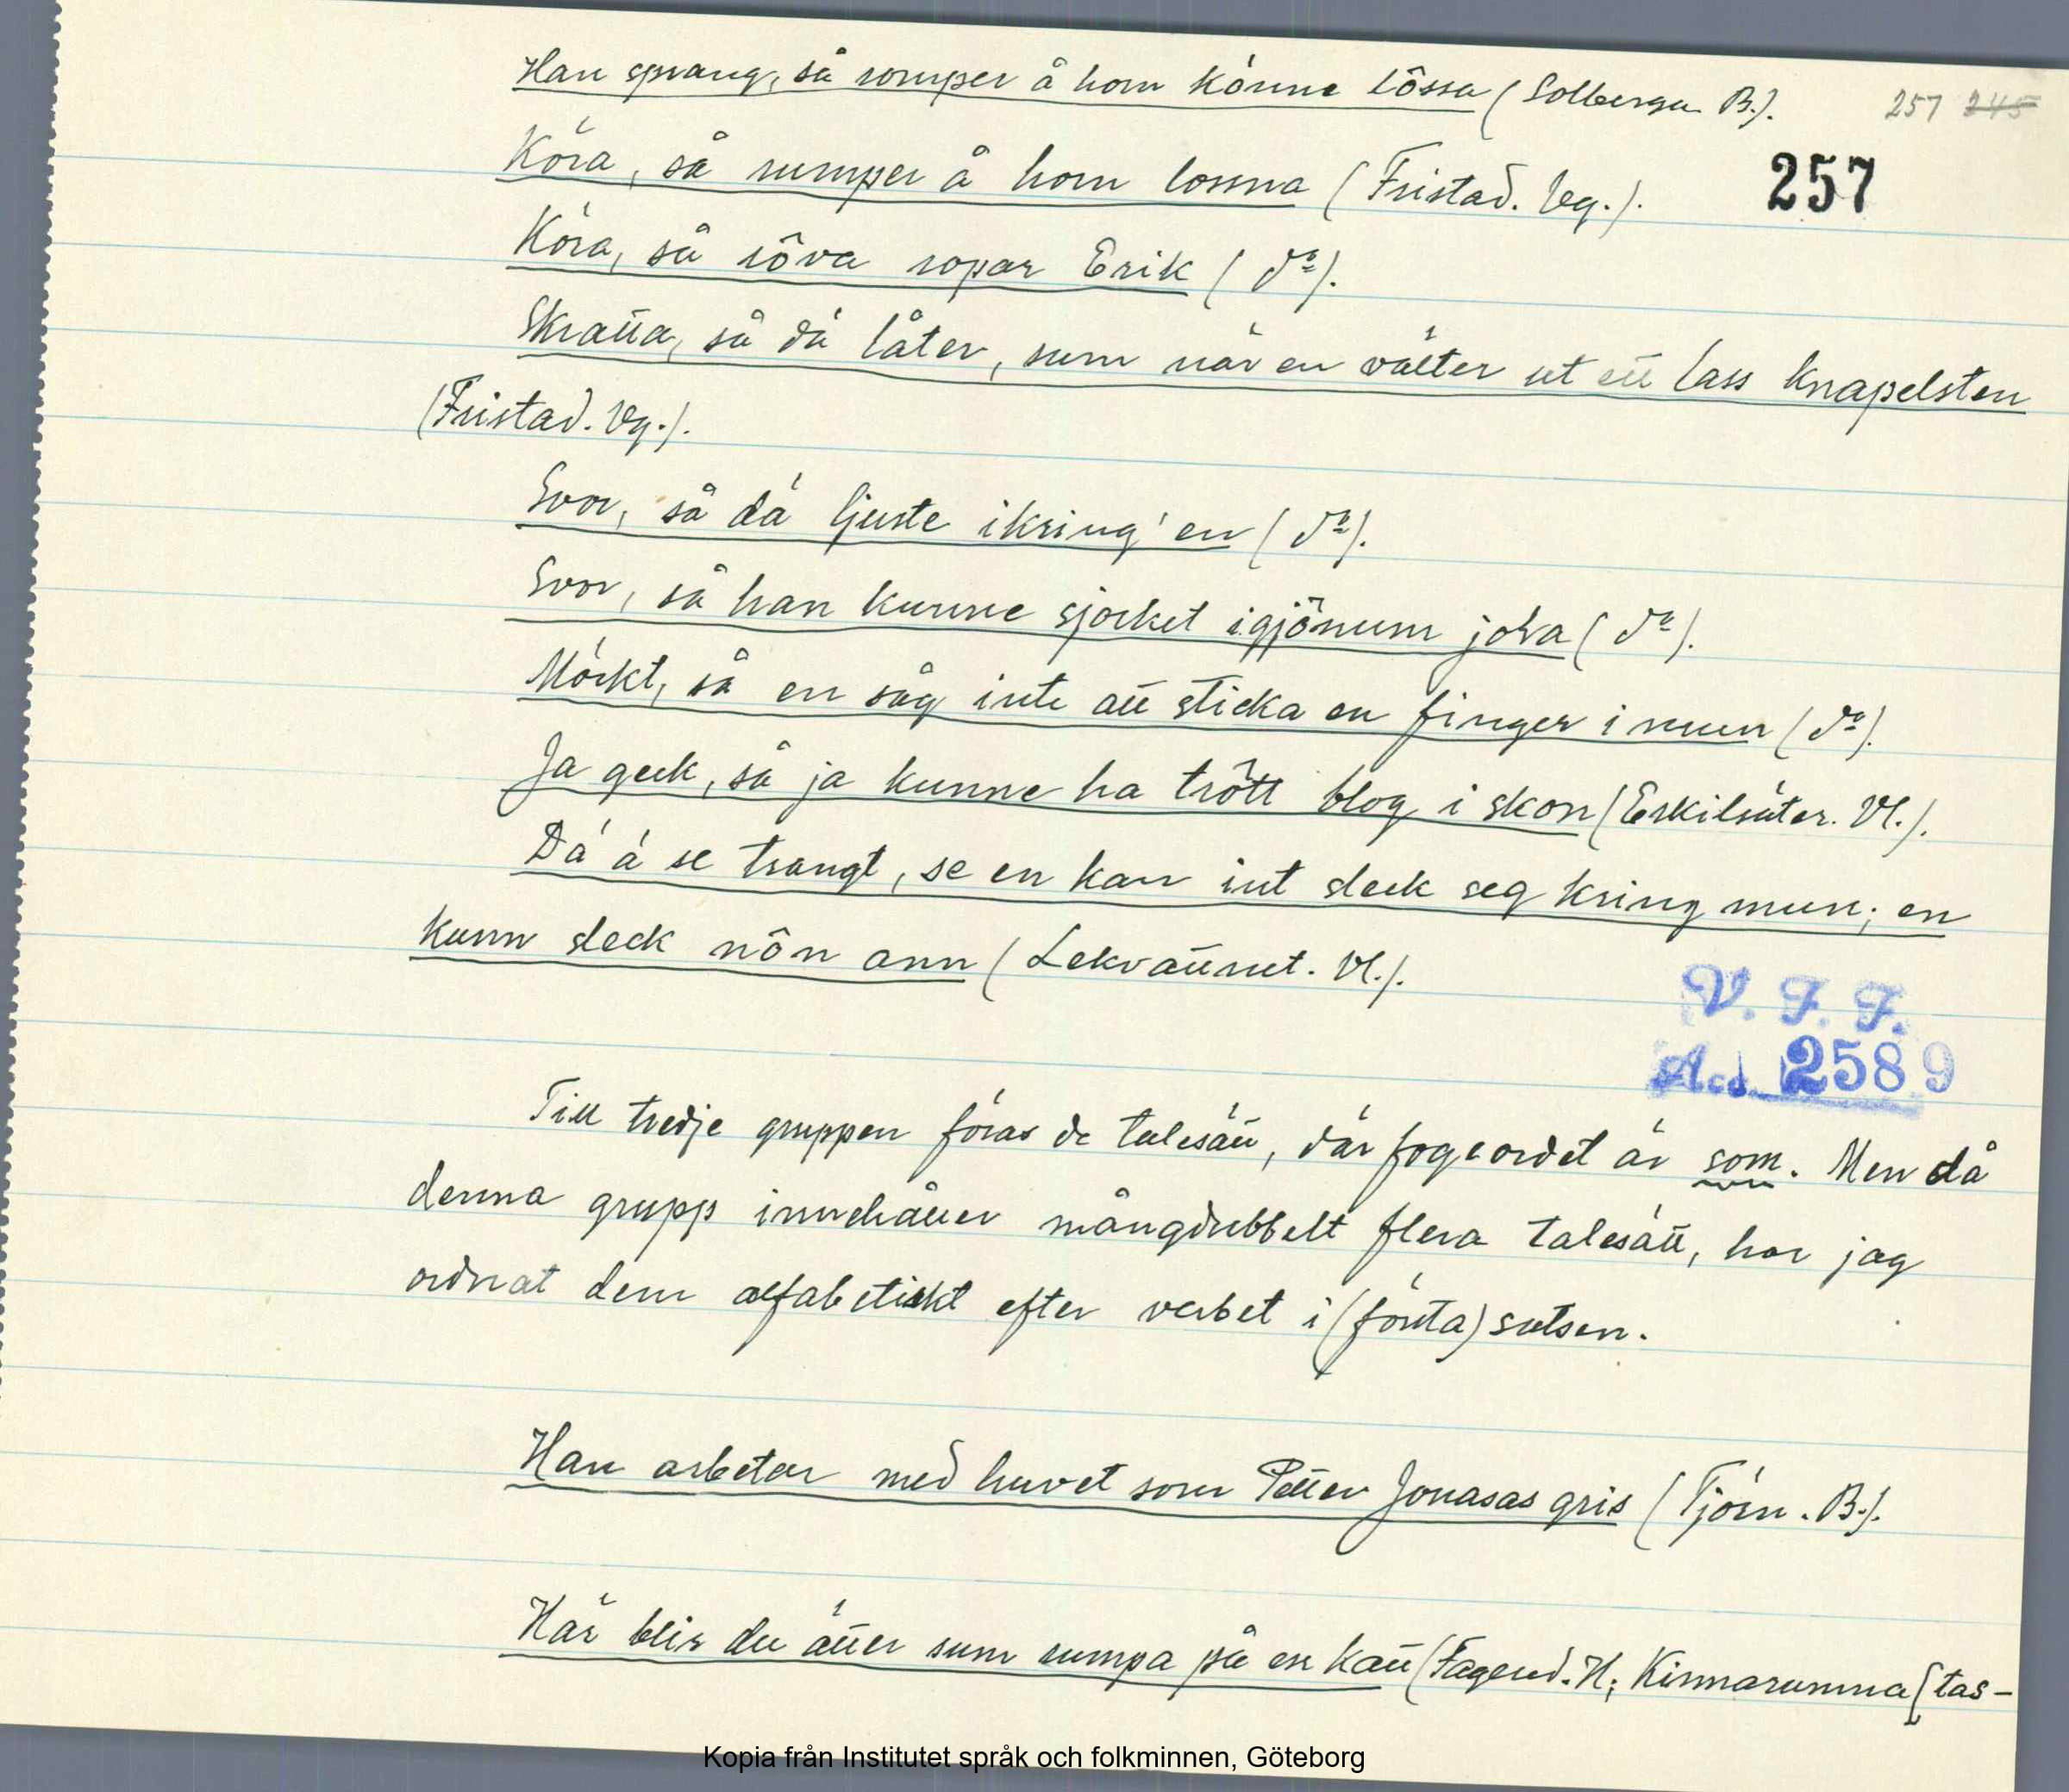 Han sprang, så romper å horn könne lôssa (Solberga B.).
257 245
Köra, så rumper å horn lossna (Fristad. Vg.).
257
Köra, så rôva ropar Erik (d:o).
Skratta, så dä låter, sum när en välter ut ett lass knapelsten
(Fristad. Vg.).
Svor, så dä ljuste ikring'en (d:o).
Svor, så han kunne sjocket igjönum jola (d:o).
Mörkt, så en såg inte att sticka en finger i mun (d:o).
Ja geck, så ja kunne ha trôtt blog i skon (Eskilsäter. Vl.).
Dä ä se trangt, se en kan int sleck seg kring mun; en
kunn sleck nôn ann (Lekvattnet. Vl.).
V. F. F.
Acc. 2589
Till tredje gruppen föras de talesätt, där fogeordet är som. Men då
denna grupp innehåller mångdubbelt flera talesätt, har jag
ordnat dem alfabetiskt efter verbet i (första) satsen.
Han arbetar med huvet som Petter Jonasas gris (Tjörn. B.).
Här blir du ätter sum rumpa på en katt (Fagered. H; Kinnarumma [tas-
Kopia från Institutet språk och folkminnen, Göteborg